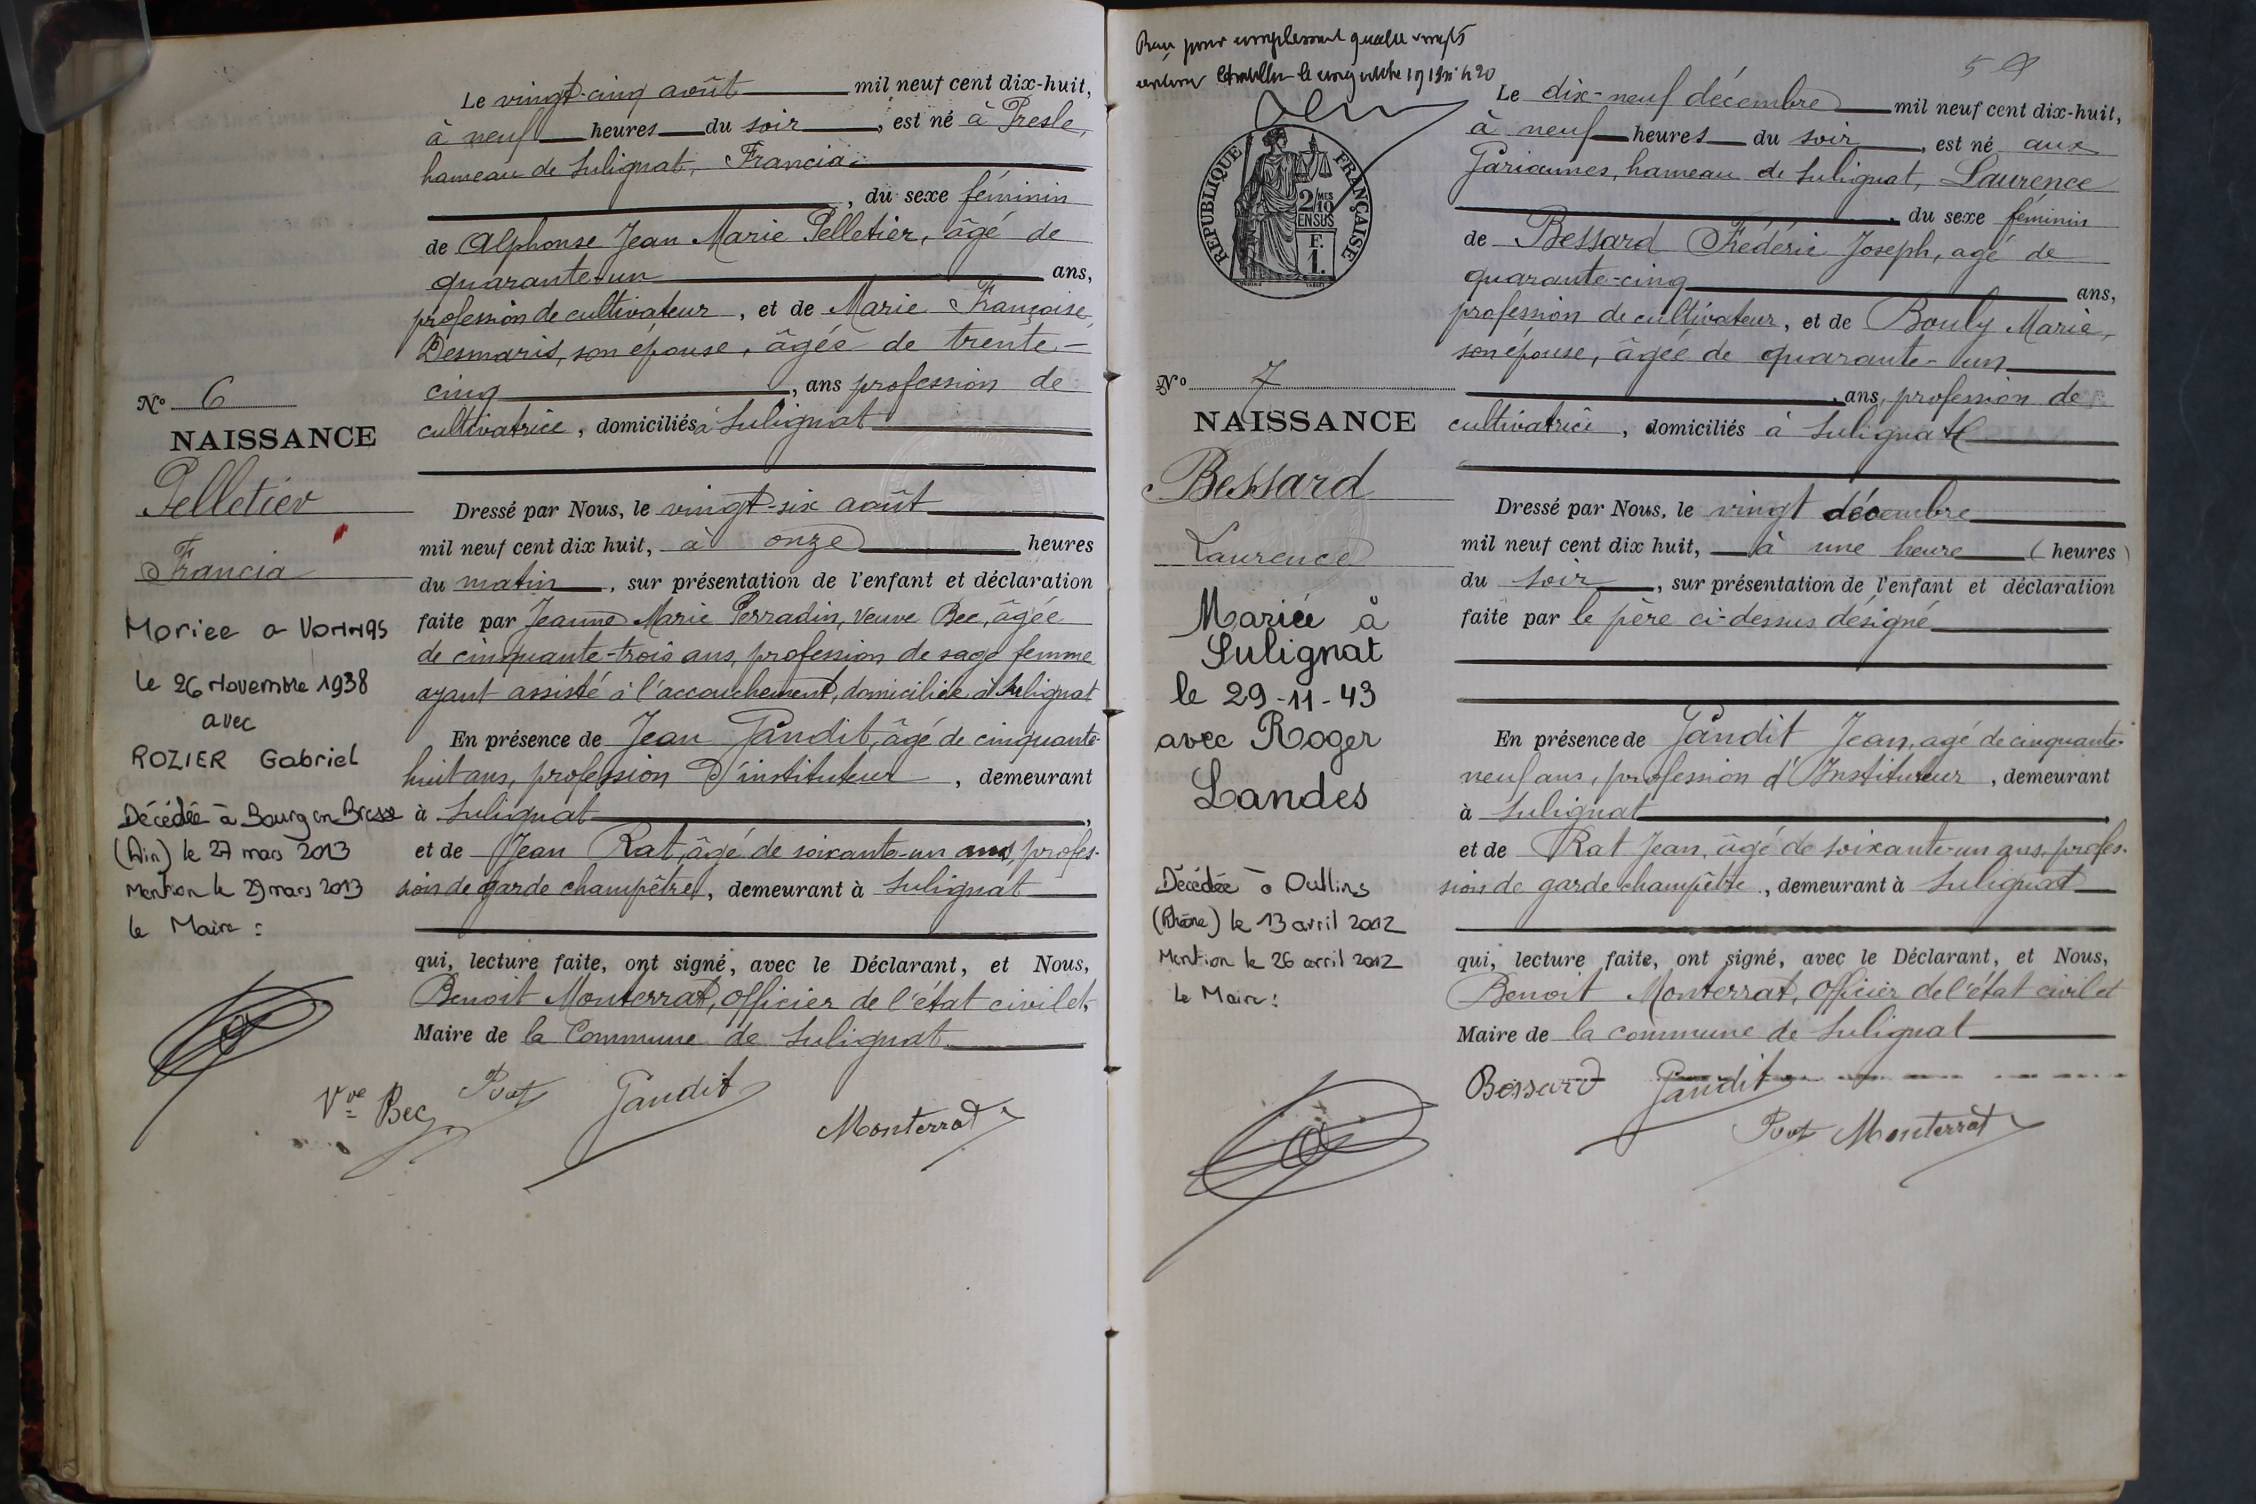 Le vingt-cinq août mil neuf cent dix-huit,
à neuf heures du soir, est né à Presle,
hameau de Sulignat, Francia
, du sexe féminin
de Alphonse Jean Marie Pelletier, âgé de
quarante-un ans,
profession de cultivateur, et de Marie Françoise
Desmaris, son épouse, âgée de trente-
cinq, ans profession de
cultivatrice, domiciliés à Sulignat
No 6
NAISSANCE
Pelletier
Francia
Mariee a Vonnas
le 26 Novembre 1938
avec
ROZIER Gabriel
Décédée à Bourg en Bresse
(Ain) le 27 mars 2013
Mention le 29 mars 2013
le Maire :
Dressé par Nous, le vingt-six août
mil neuf cent dix huit, à onze heures
du matin, sur présentation de l'enfant et déclaration
faite par Jeanne Marie Perradin, veuve Bec, âgée
de cinquante-trois ans, profession de sage femme
ayant assisté à l'accouchement, domiciliée à Sulignat
En présence de Jean Gandit, âgé de cinquante-
huit ans, profession d'instituteur, demeurant
à Sulignat,
et de Jean Rat, âgé de soixante-un ans, profes-
sion de garde champêtre, demeurant à Sulignat
qui, lecture faite, ont signé, avec le Déclarant, et Nous,
Benoit Monterrat, officier de l'état civil et
Maire de la Commune de Sulignat
Vve Bec Rat Gandit
Monterrat
pour quatre vingts
le cinq
RÉPUBLIQUE FRANÇAISE
2/10 MES
EN SUS
F.
1.
Le dix-neuf décembre mil neuf cent dix-huit,
à neuf heures du soir, est né aux
hameau de Sulignat, Laurence
, du sexe féminin
de Bessard Frédéric Joseph, agé de
quarante-cinq ans,
profession de cultivateur, et de Bouly Marie,
son épouse, âgée de quarante-un
, ans, profession de
cultivatrice, domiciliés à Sulignat
No 7
NAISSANCE
Bessard
Laurence
Mariée à
Sulignat
le 29-11-43
avec Roger
Landes
Décédée à Oullins
(Rhône) le 13 avril 2012
Mention le 26 avril 2012
le Maire :
Dressé par Nous, le vingt décembre
mil neuf cent dix huit, à une heure (heures)
du soir, sur présentation de l'enfant et déclaration
faite par le père ci-dessus désigné
En présence de Gandit Jean, agé de cinquante-
neuf ans, profession d'Instituteur, demeurant
à Sulignat,
et de Rat Jean, âgé de soixante-un ans, profes-
sion de garde champêtre, demeurant à Sulignat
qui, lecture faite, ont signé, avec le Déclarant, et Nous,
Benoit Monterrat, Officier de l'état civil et
Maire de la commune de Sulignat
Bessard Gandit
Rat Monterrat